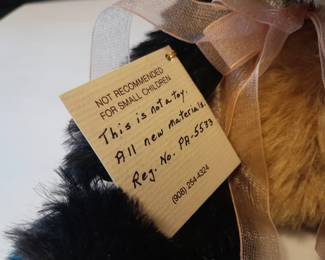 NOT RECOMMENDED
FOR SMALL CHILDREN
This is not a toy.
All new materials.
Reg. No. PA-5573
(908) 254-4324